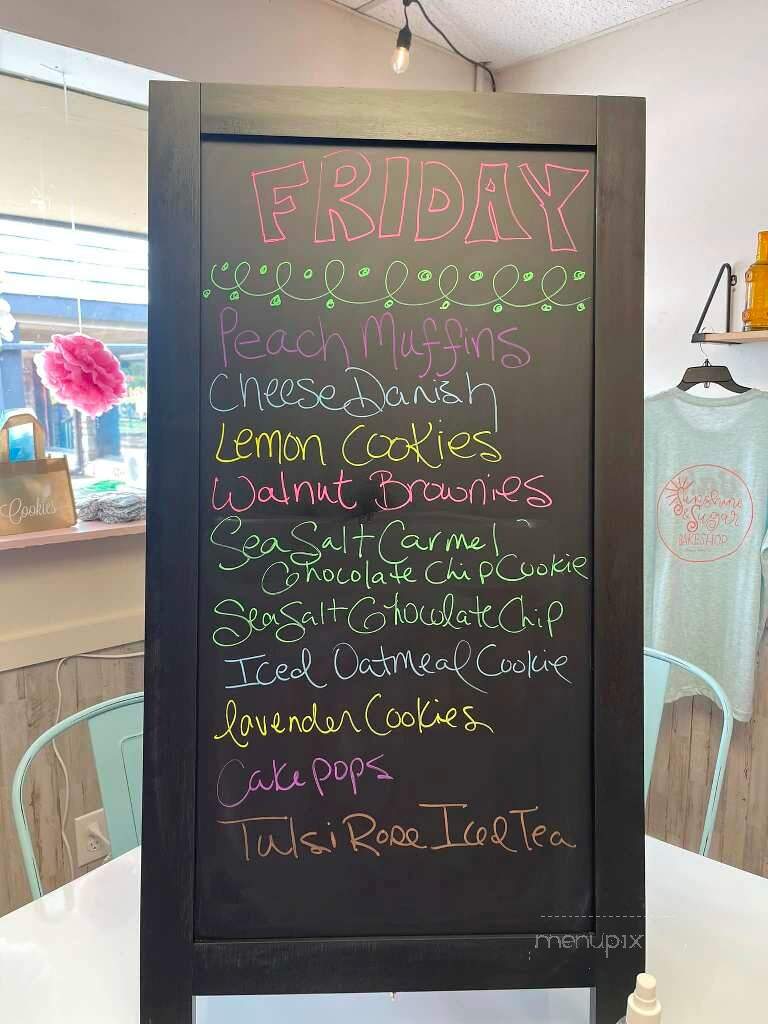 FRIDAY
Peach Muffins
Cheese Danish
Lemon Cookies
Walnut Brownies
Sea Salt Carmel
Chocolate Chip Cookie
Sea Salt Chocolate Chip
Iced Oatmeal Cookie
lavender Cookies
Cake pops
Tulsi Rose Iced Tea
Cookies
Sunshine
& Sugar
BAKESHOP
menupix